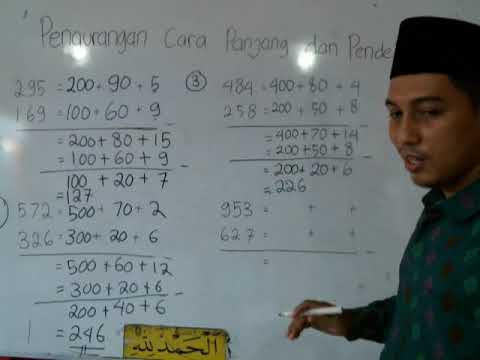 Pengurangan Cara Panjang dan Pende
295 = 200 + 90 + 5
169 = 100 + 60 + 9 -
= 200 + 80 + 15
= 100 + 60 + 9 -
100 + 20 + 7
= 127
572 = 500 + 70 + 2
326 = 300 + 20 + 6 -
= 500 + 60 + 12
= 300 + 20 + 6 -
200 + 40 + 6
1 = 246
③ 484 = 400 + 80 + 4
258 = 200 + 50 + 8 -
= 400 + 70 + 14
= 200 + 50 + 8 -
= 200 + 20 + 6
= 226
953 = + +
627 = + + -
=
الحمد لله